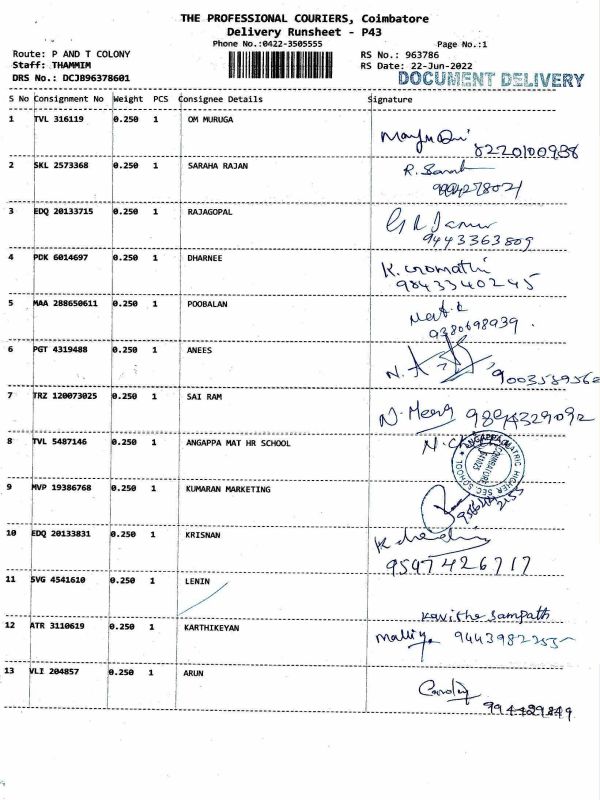 THE PROFESSIONAL COURIERS, Coimbatore
Delivery Runsheet - P43
Phone No.:0422-3505555
Page No.:1
Route: P AND T COLONY
RS No.: 963786
Staff: THAMMIM
RS Date: 22-Jun-2022
DRS No.: DCJB96378601
DOCUMENT DELIVERY
S No Consignment No Weight PCS Consignee Details Signature
1 TVL 316119 0.250 1 OM MURUGA
8220100938
2 SKL 2573368 0.250 1 SARAHA RAJAN
R.
3 EDQ 20133715 0.250 1 RAJAGOPAL
9443363809
4 PDK 6014697 0.250 1 DHARNEE
9843340245
5 MAA 288650611 0.250 1 POOBALAN
9380698939.
6 PGT 4319488 0.250 1 ANEES
9003589562
7 TRZ 120073025 0.250 1 SAI RAM
N. 9894329092
8 TVL 5487146 0.250 1 ANGAPPA MAT HR SCHOOL
ANGAPPA MATRIC HIGHER SEC SCHOOL
COIMBATORE
9 MVP 19386768 0.250 1 KUMARAN MARKETING
10 EDQ 20133831 0.250 1 KRISNAN
9597426717
11 SVG 4541610 0.250 1 LENIN
Kavitha Sampath
12 ATR 3110619 0.250 1 KARTHIKEYAN
9443982255
13 VLI 204857 0.250 1 ARUN